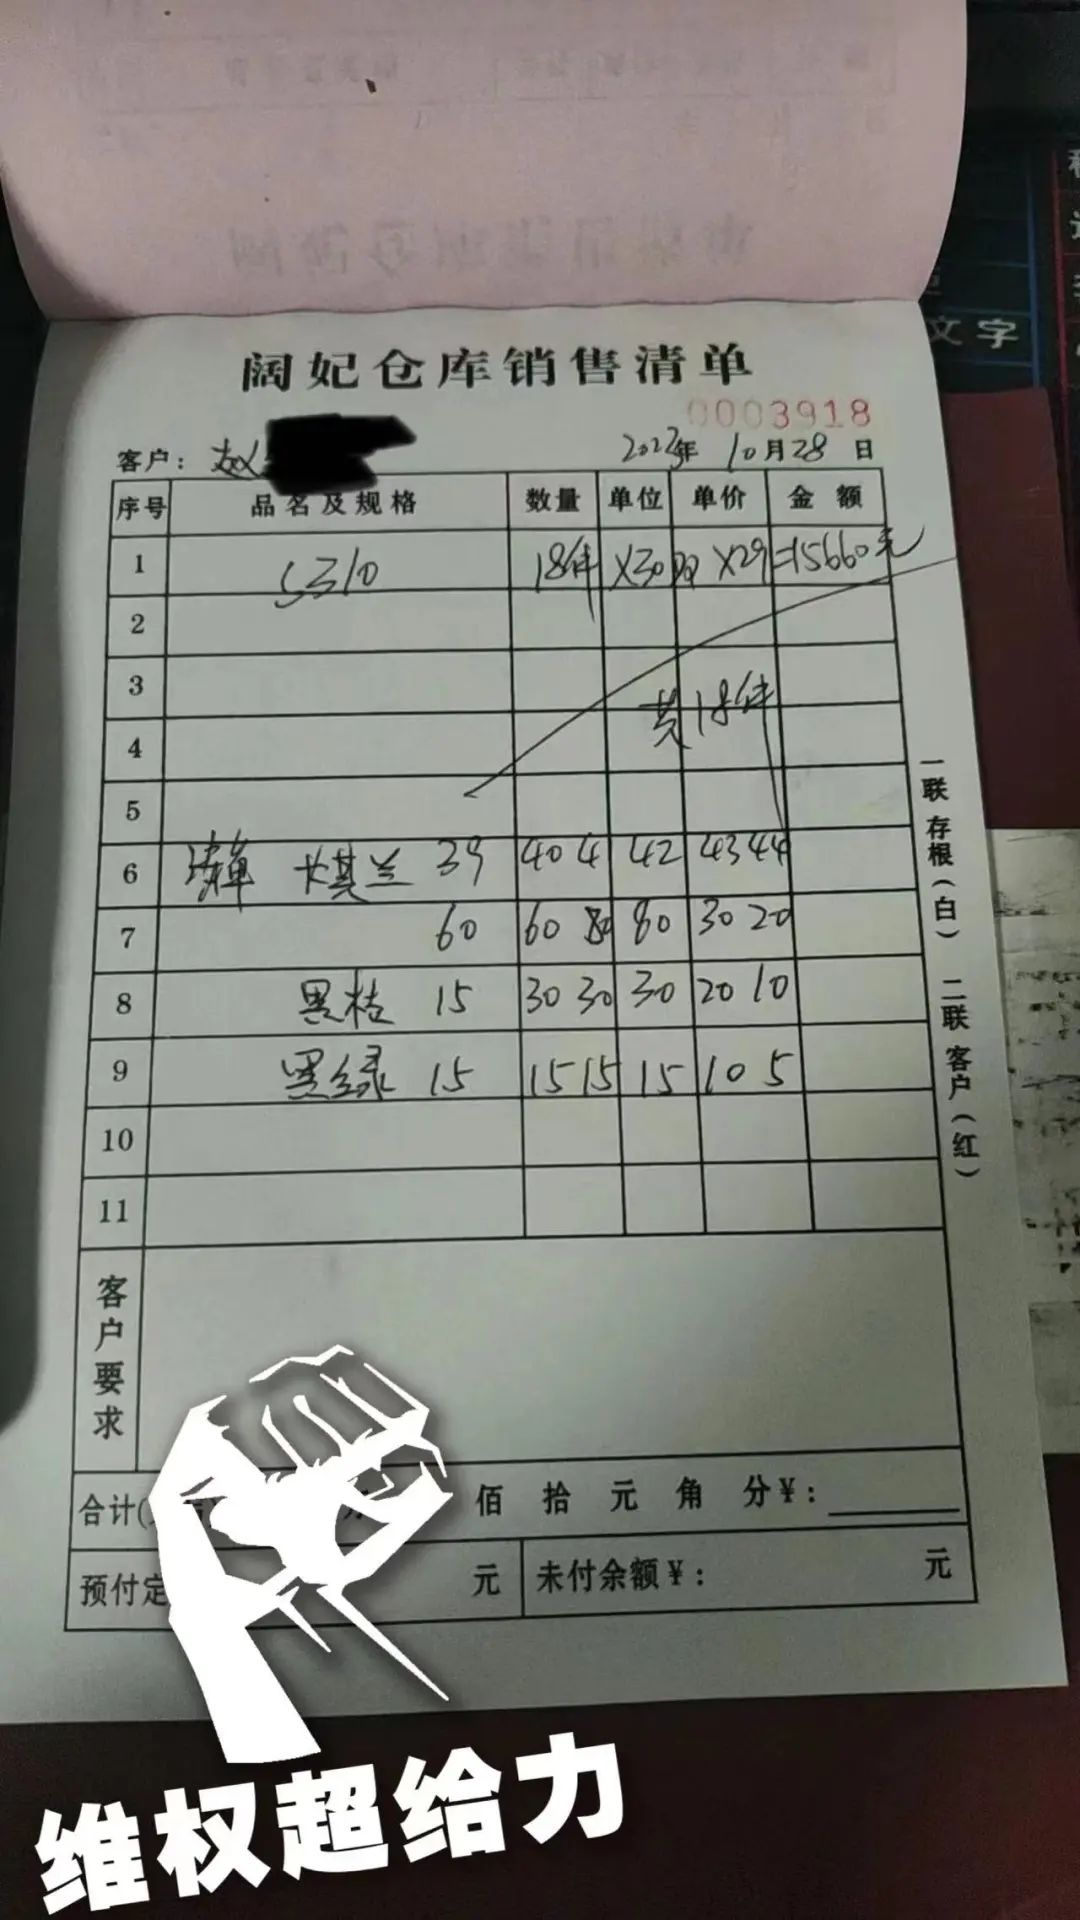 阔妃仓库销售清单
0003918
客户：赵 2023年10月28日
序号 品名及规格 数量 单位 单价 金额
1 5310 18件 X30双 X29=15660元
2
3 共18件
4
5
6 清单 卡其兰 39 40 4 42 43 44
7 60 60 80 80 30 20
8 黑桔 15 30 30 30 20 10
9 黑绿 15 15 15 15 10 5
10
11
客户要求
合计( 佰 拾 元 角 分￥：
预付定 元 未付余额￥： 元
一联存根（白） 二联客户（红）
文字
维权超给力